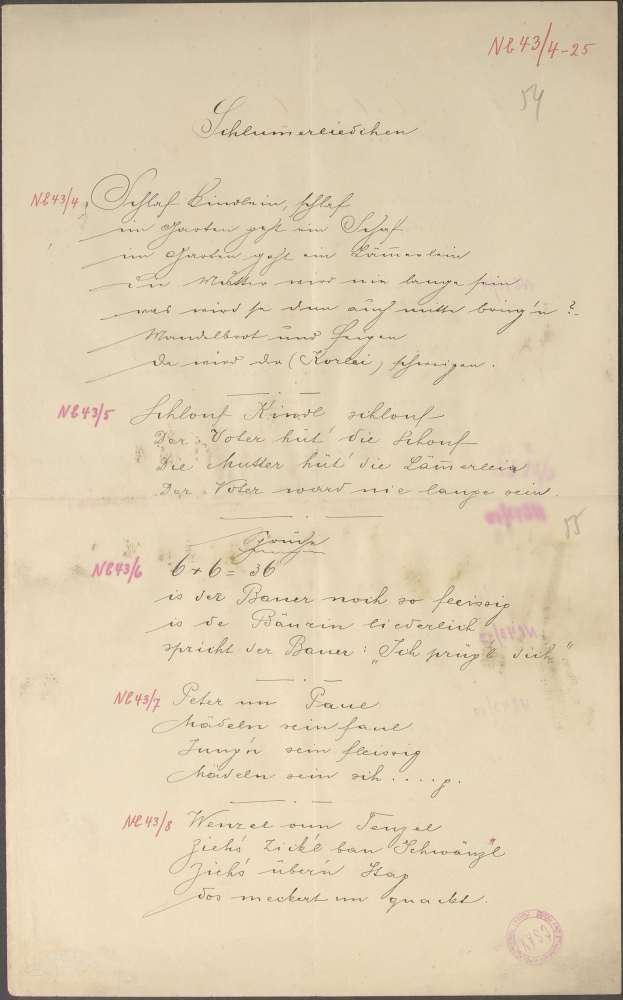 Nl 43/4-25
54
Schlummerliedchen
Nl 43/4 Schlaf Kindlein, schlaf
im Garten geht ein Schaf
im Garten geht ein Lämmerlein
un Mutter wird nie lange sein
was wird se dem auch mitte bring'n?
Mandelbrot und Feigen
da wird da (Korlei) schweigen.
Nl 43/5 Schlouf Kindl schlouf
Der Voter hüt' die Schouf
Die Mutter hüt' die Lämerlein
Der Voter ward nie lange sein.
Sprüche
55
Nl 43/6 6 + 6 = 36
is der Bauer noch so fleissig
is de Bäurin liederlich
spricht der Bauer: „Ich prügl dich"
Nl 43/7 Peter un Paul
Mädeln sein faul
Jung'n sein fleissig
Mädeln sein sch....g.
Nl 43/8 Wenzel oun Tenzel
Zieh's Zick'l ban Schwänzl
Zieh's über'n
dos meckert un quackt.